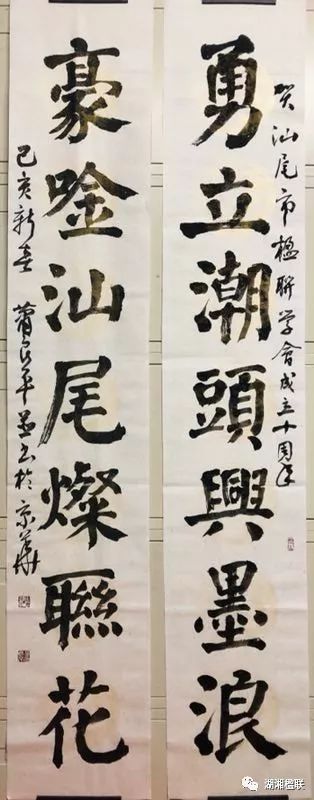 賀汕尾市楹聯学會成立十周年
勇立潮頭興墨浪
豪唫汕尾燦聯花
己亥新春 蕭良平並书於京華
湖湘楹联